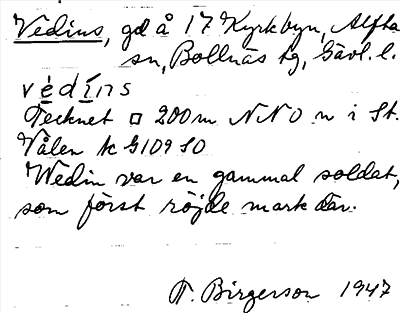 Vedins, gd å 17 Kyrkbyn, Alfta
sn, Bollnäs tg, Gävl. l.
védíns
Tecknet □ 200 m NNO n i St.
Vålen k G109 SO
Wedin var en gammal soldat,
som först röjde mark där.
T. Birgerson 1947